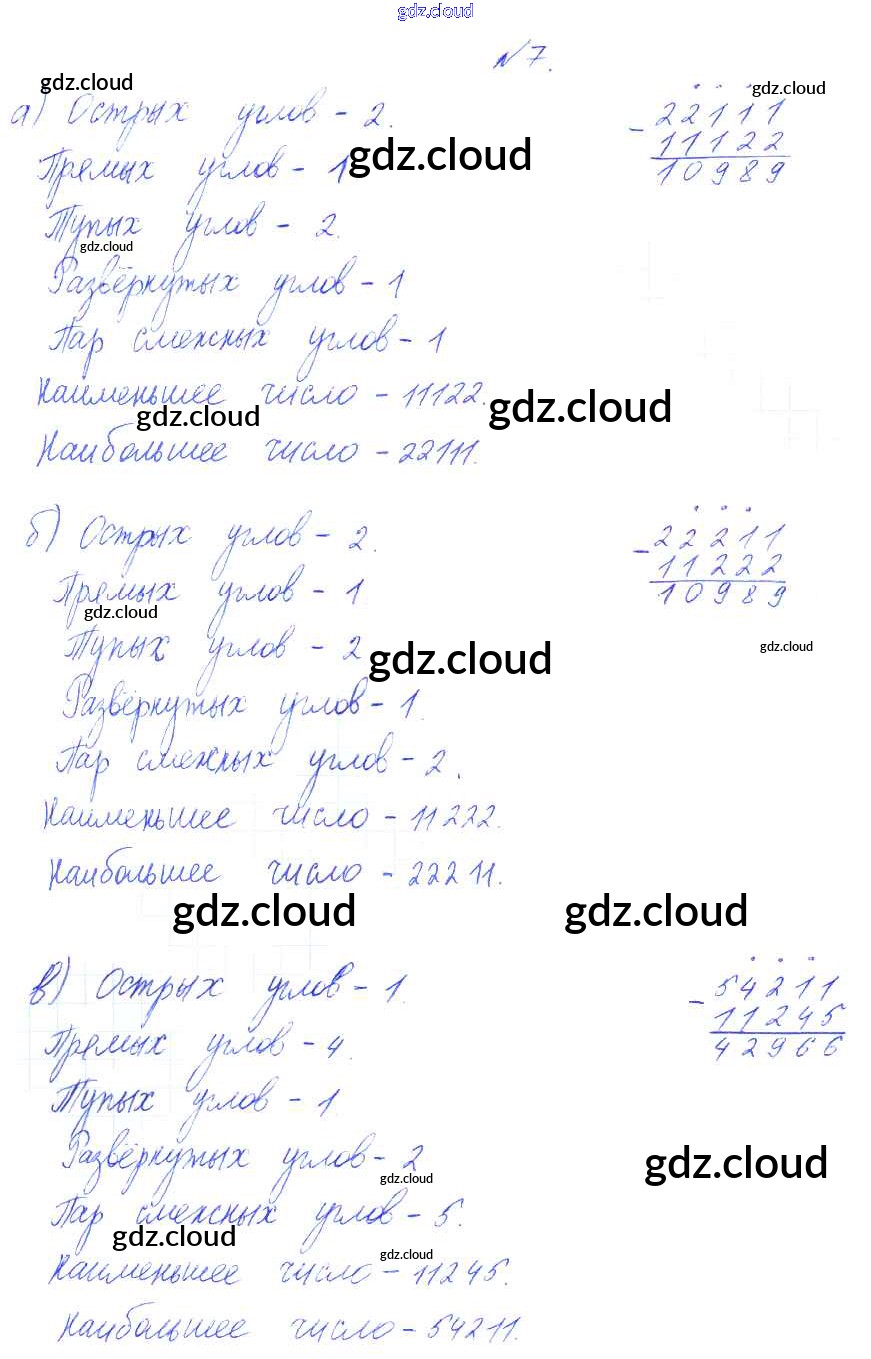 gdz.cloud
№7.
gdz.cloud
gdz.cloud
а) Острых углов - 2.
Прямых углов - 1
gdz.cloud
Тупых углов - 2.
gdz.cloud
Развёрнутых углов - 1
Пар смежных углов - 1
Наименьшее число - 11122.
gdz.cloud
gdz.cloud
Наибольшее число - 22111.
- 22111
11122
10989
б) Острых углов - 2.
Прямых углов - 1
gdz.cloud
Тупых углов - 2
gdz.cloud
gdz.cloud
Развёрнутых углов - 1.
Пар смежных углов - 2.
Наименьшее число - 11222.
Наибольшее число - 22211.
- 22211
11222
10989
gdz.cloud
gdz.cloud
в) Острых углов - 1.
Прямых углов - 4.
Тупых углов - 1.
Развёрнутых углов - 2
gdz.cloud
gdz.cloud
Пар смежных углов - 5.
gdz.cloud
gdz.cloud
Наименьшее число - 11245.
Наибольшее число - 54211.
- 54211
11245
42966